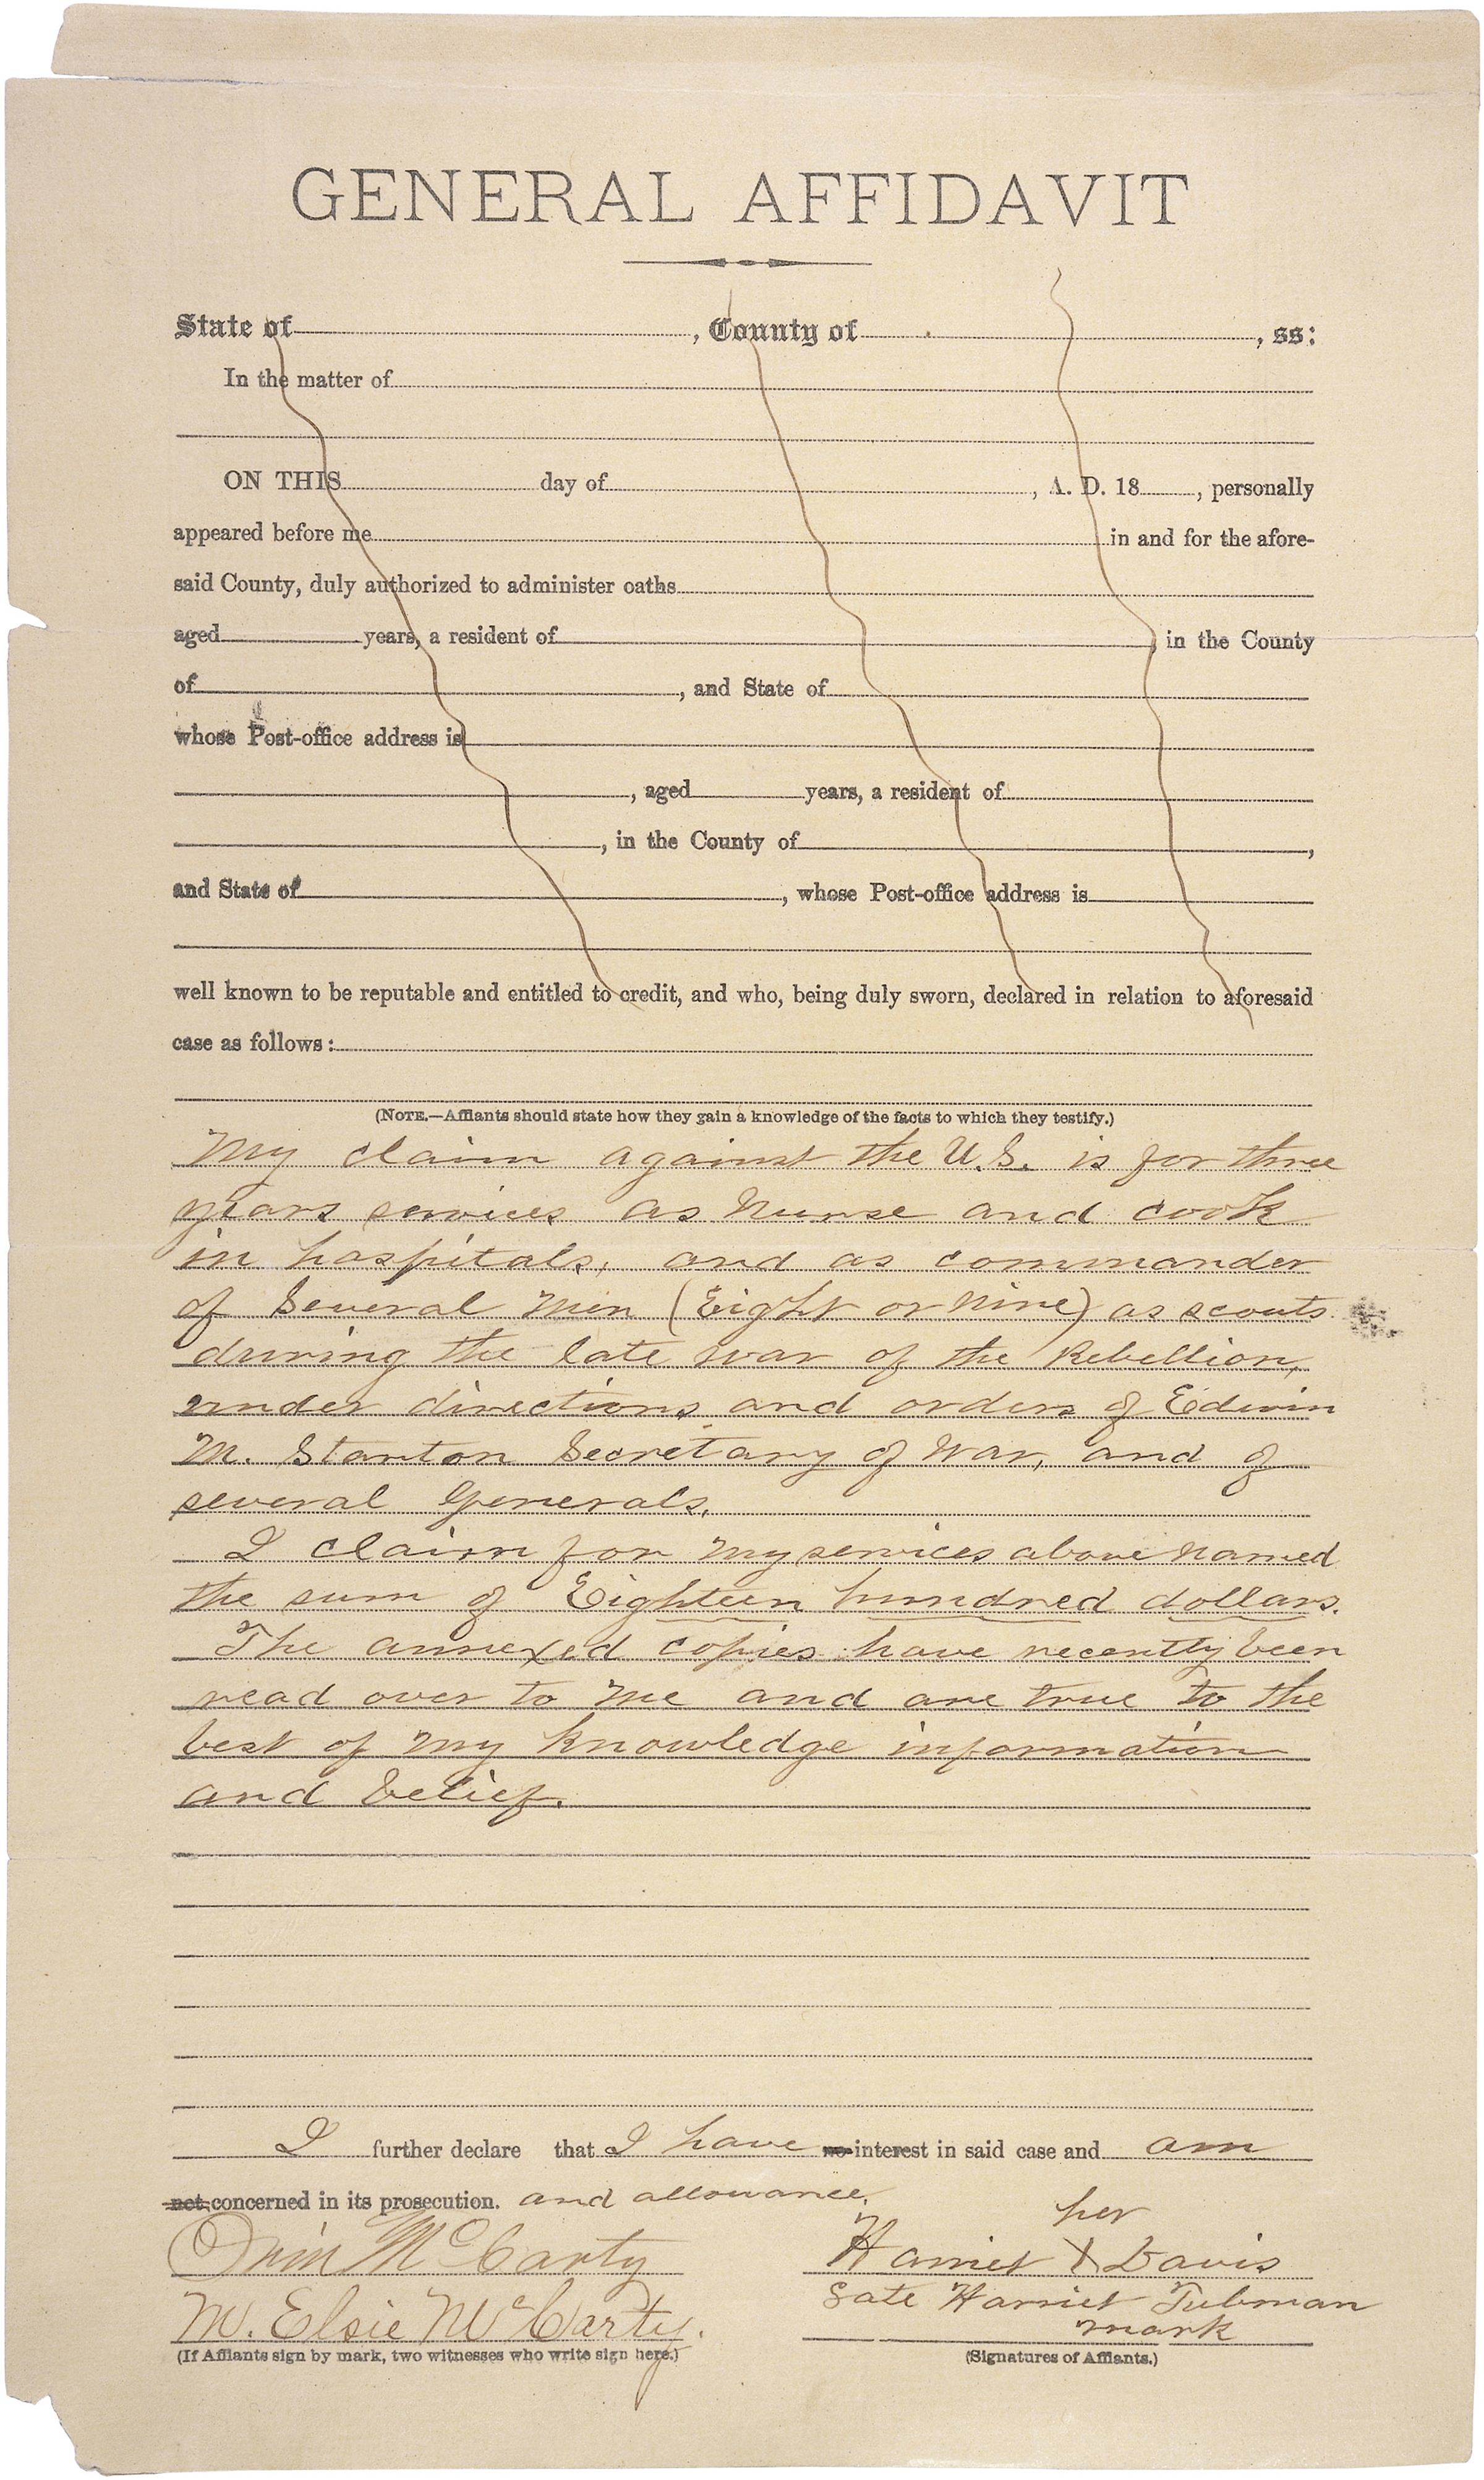 GENERAL AFFIDAVIT
State of , County of , ss:
In the matter of
ON THIS day of , A. D. 18 , personally
appeared before me in and for the afore-
said County, duly authorized to administer oaths
aged years, a resident of , in the County
of , and State of
whose Post-office address is
, aged years, a resident of
, in the County of ,
and State of , whose Post-office address is
well known to be reputable and entitled to credit, and who, being duly sworn, declared in relation to aforesaid
case as follows:
(NOTE.—Affiants should state how they gain a knowledge of the facts to which they testify.)
My claim against the U.S. is for three
years services as nurse and cook
in hospitals, and as commander
of Several men (Eight or nine) as scouts
during the late war of the Rebellion,
under directions and orders of Edwin
M. Stanton Secretary of War, and of
several Generals.
I claim for my services above named
the sum of Eighteen hundred dollars.
The annexed copies have recently been
read over to me and are true to the
best of my knowledge information
and belief.
I further declare that I have no interest in said case and am
not concerned in its prosecution. and allowance.
her
Orin McCarty Harriet X Davis
late Harriet Tubman
M. Elsie McCarty. mark
(If Affiants sign by mark, two witnesses who write sign here.) (Signatures of Affiants.)